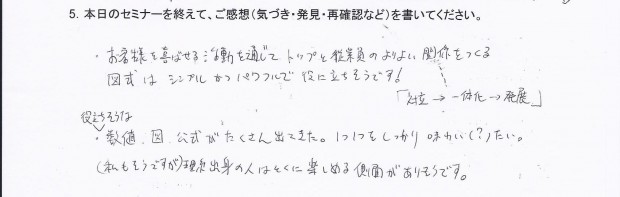 5. 本日のセミナーを終えて、ご感想（気づき・発見・再確認など）を書いてください。
・お客様を喜ばせる活動を通じてトップと従業員のよりよい関係をつくる
図式はシンプルかつパワフルで役に立ちそうです!
「対立→一体化→発展」
役立ちそうな
・数値、図、公式がたくさん出てきた。1つ1つをしっかり味わい(?)たい。
(私もそうですが)理系出身の人はとくに楽しめる側面がありそうです。